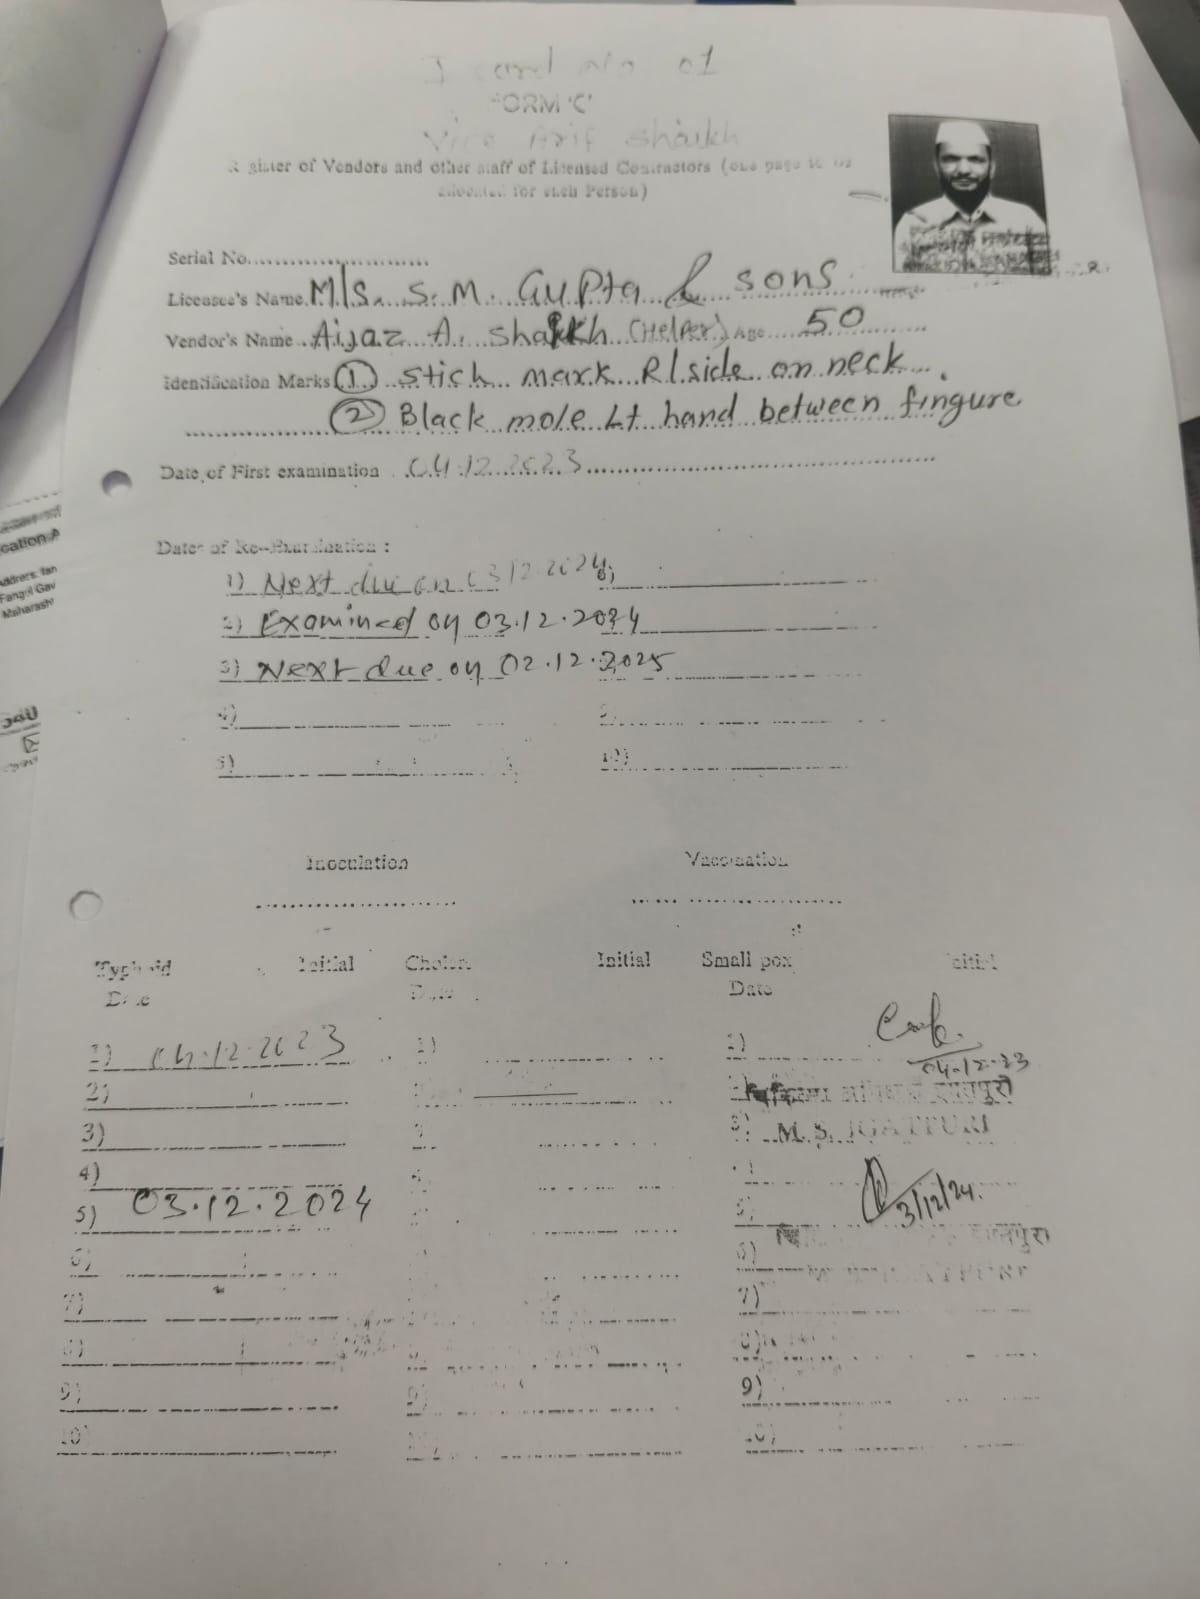 I card no 01
FORM 'C'
Vice Arif Shaikh
Register of Vendors and other staff of Licensed Contractors (one page to be
allocated for each Person)
Serial No.
Licensee's Name. M/s. S. M. Gupta & sons
Vendor's Name Aijaz A. Shaikh (Helper) Age 50
Identification Marks (1) stich mark R/side on neck.
(2) Black mole Lt hand between fingure
Date of First examination 04.12.2023
Dates of Re-Examination :
1) Next due on 03.12.2024 6)
2) Examined on 03.12.2024
3) Next due on 02.12.2025
4) 9.
5) 10)
Inoculation Vaccination
Typhoid Initial Cholera Initial Small pox Initial
Date Date Date
1) 04.12.2023 1) 1)
04-12-23
2)
3) 3) M. S. IGATPURI
4)
5) 03.12.2024 5) 3/12/24.
6) 6)
7) 7)
8) 8)
9) 9) 9)
10) 10)
cation A
Address: fan
Fangul Gav
Maharasht